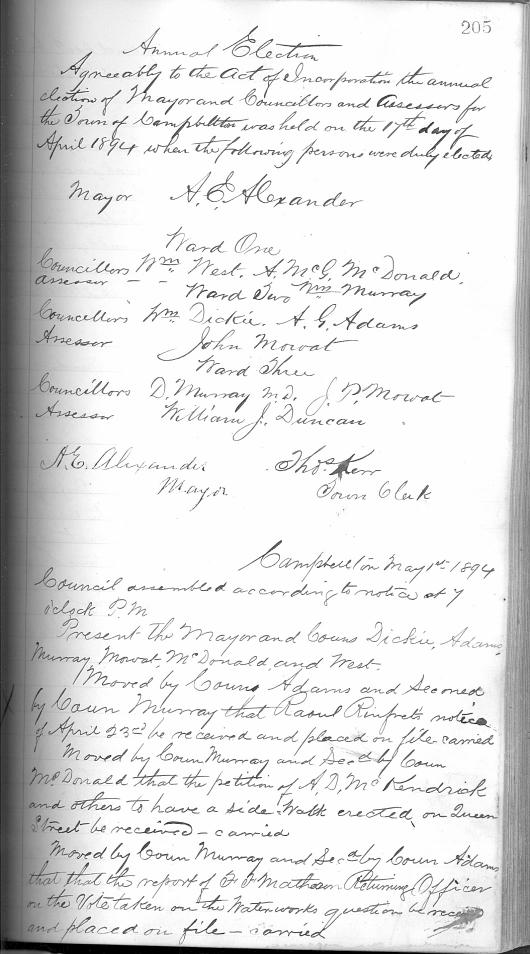 205
Annual Election
Agreeably to the Act of Incorporation the annual
election of Mayor and Councillors and Assessors for
the Town of Campbellton was held on the 17th day of
April 1894 when the following persons were duly elected
Mayor A. E. Alexander
Ward One
Councillors Wm West. A. McG. McDonald.
assessor - - Wm Murray
Ward Two
Councillors Wm Dickie. A. G. Adams
Assessor John Mowat
Ward Three
Councillors D. Murray M.D. J. P. Mowat
Assessor William J. Duncan
A. E. Alexander Thos Kerr
Mayor Town Clerk
Campbellton May 1st 1894
Council assembled according to notice at 7
o'clock P.M
Present the Mayor and Couns Dickie, Adams,
Murray, Mowat, McDonald, and West.
Moved by Coun Adams and Seconed
by Coun Murray that Raoul Rinfrets notice
of April 23rd be received and placed on file carried
Moved by Coun Murray and Secd by Coun
McDonald that the petition of A. D. McKendrick
and others to have a side Walk erected on Queen
Street be received - carried
Moved by Coun Murray and Secd by Coun Adams
that that the report of F F Matheson Returning Officer
on the Vote taken on the Waterworks question be received
and placed on file - carried